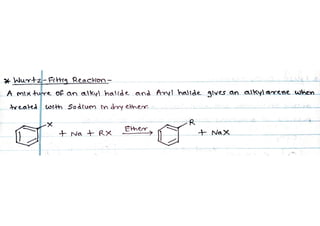 * Wurtz-Fittig Reaction-
A mixture of an alkyl halide and Aryl halide gives an alkylarene when
treated with Sodium in dry ether.
X + Na + RX Ether → R + NaX